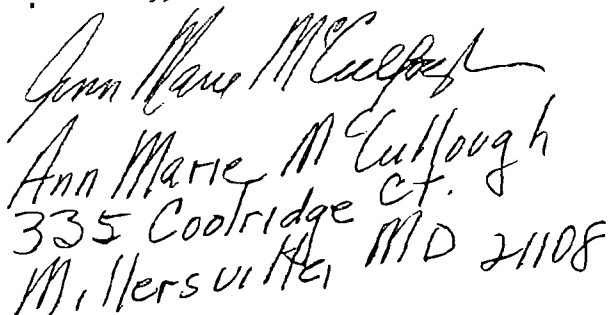 Ann Marie McCullough
Ann Marie McCullough
335 Coolridge Ct.
Millersville, MD 21108